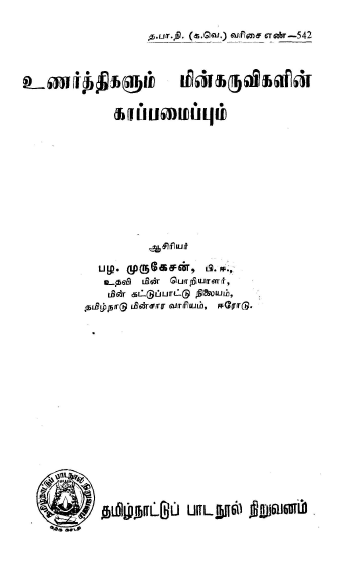 த.பா.நி. (க.வெ.) வரிசை எண்—542
உணர்த்திகளும் மின்கருவிகளின்
காப்பமைப்பும்
ஆசிரியர்
பழ. முருகேசன், பி. ஈ.,
உதவி மின் பொறியாளர்,
மின் கட்டுப்பாட்டு நிலையம்,
தமிழ்நாடு மின்சார வாரியம், ஈரோடு.
தமிழ்நாட்டுப் பாடநூல் நிறுவனம்